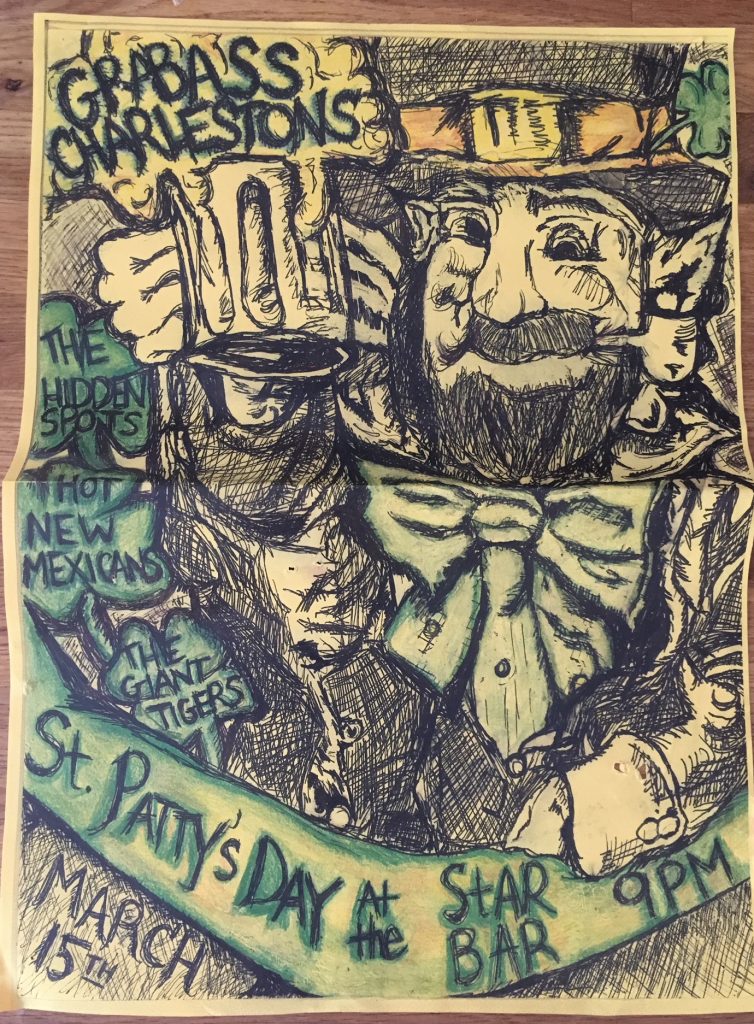 GRABASS
CHARLESTONS
THE
HIDDEN
SPOTS
HOT
NEW
MEXICANS
THE
GIANT
TIGERS
St. PATTY's DAY At the StAR BAR 9PM
MARCH
15TH